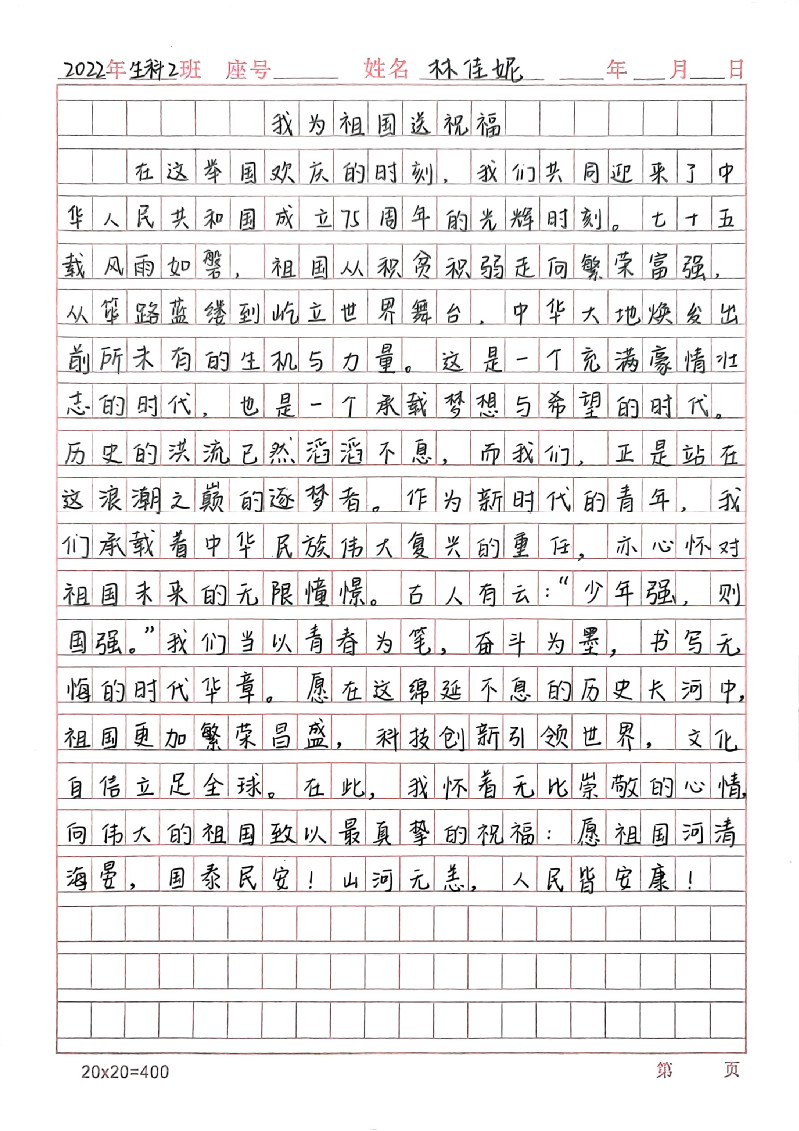 2022年生科2班 座号 姓名 林佳妮 年 月 日
我为祖国送祝福
在这举国欢庆的时刻，我们共同迎来了中
华人民共和国成立75周年的光辉时刻。七十五
载风雨如磐，祖国从积贫积弱走向繁荣富强，
从筚路蓝缕到屹立世界舞台，中华大地焕发出
前所未有的生机与力量。这是一个充满豪情壮
志的时代，也是一个承载梦想与希望的时代。
历史的洪流已然滔滔不息，而我们，正是站在
这浪潮之巅的逐梦者。作为新时代的青年，我
们承载着中华民族伟大复兴的重任，亦心怀对
祖国未来的无限憧憬。古人有云：“少年强，则
国强。”我们当以青春为笔，奋斗为墨，书写无
悔的时代华章。愿在这绵延不息的历史长河中，
祖国更加繁荣昌盛，科技创新引领世界，文化
自信立足全球。在此，我怀着无比崇敬的心情，
向伟大的祖国致以最真挚的祝福：愿祖国河清
海晏，国泰民安！山河无恙，人民皆安康！
20x20=400 第 页